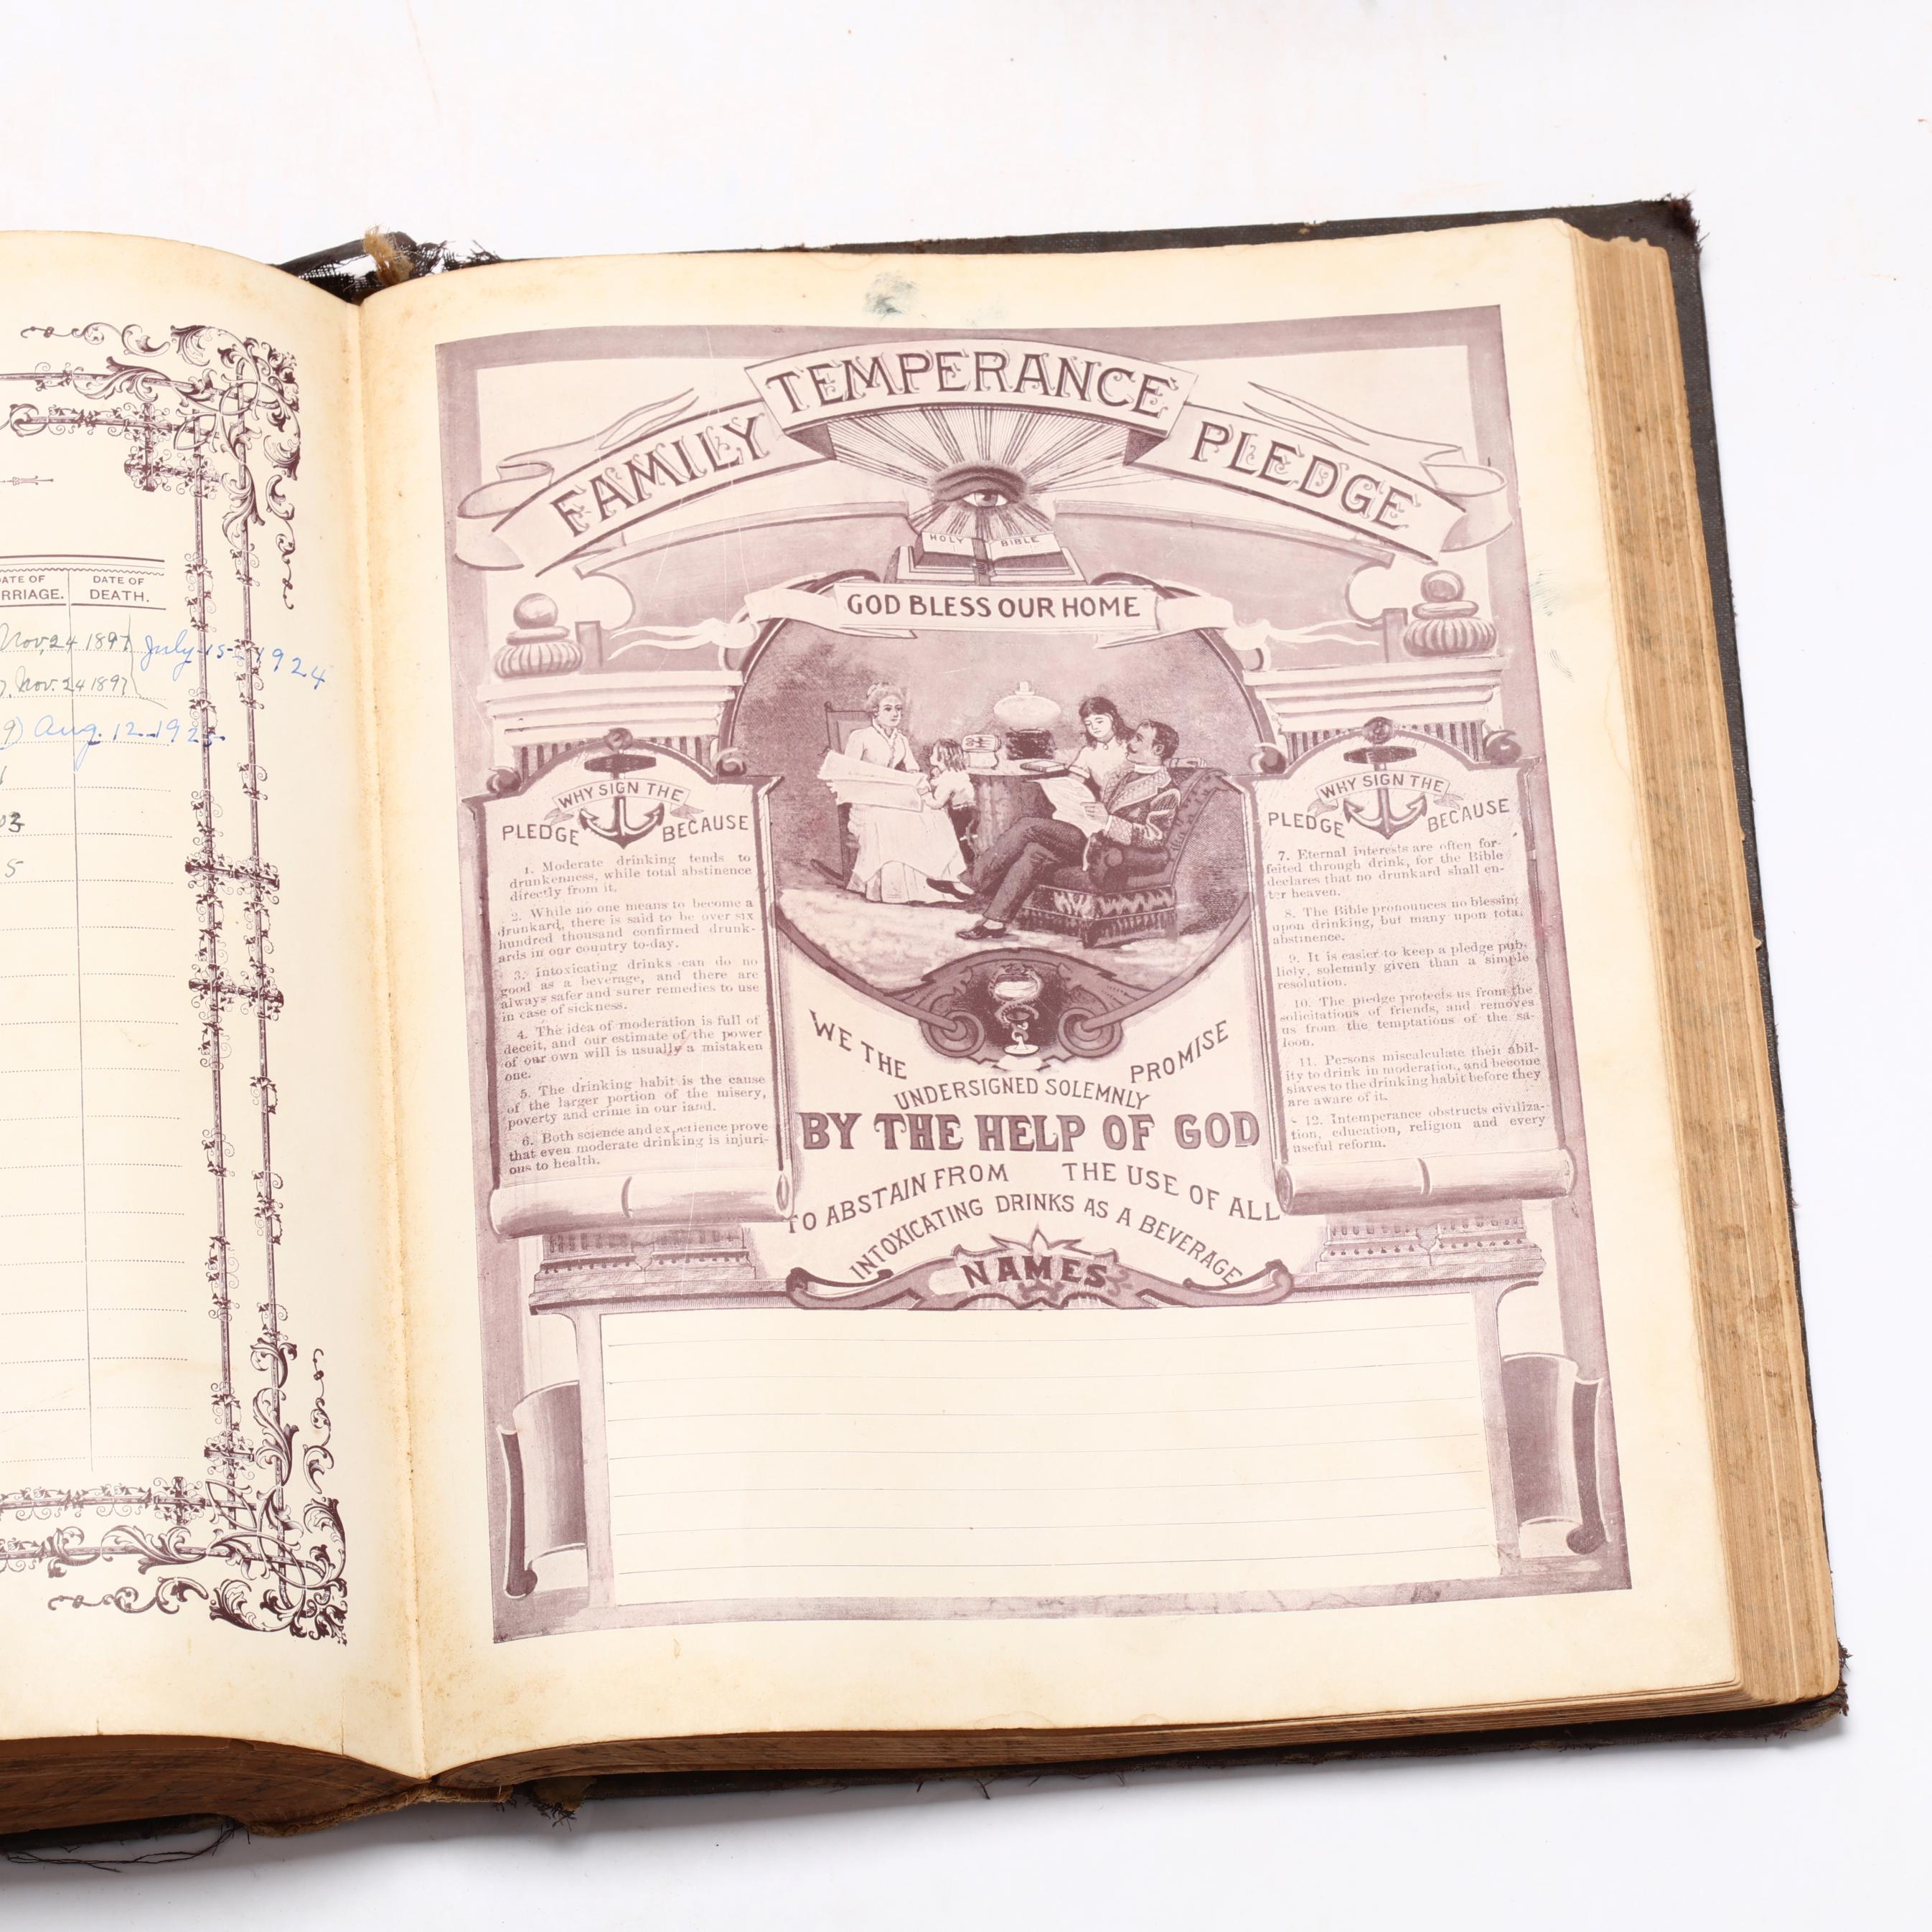 DATE OF
DEATH.
RRIAGE.
Nov. 24 1897
July 15 1924
Nov. 24 1897
9) Aug. 12 192
03
5
FAMILY TEMPERANCE PLEDGE
HOLY BIBLE
GOD BLESS OUR HOME
WHY SIGN THE
PLEDGE BECAUSE
1. Moderate drinking tends to
drunkenness, while total abstinence
directly from it.
2. While no one means to become a
drunkard, there is said to be over six
hundred thousand confirmed drunk-
ards in our country to-day.
3. Intoxicating drinks can do no
good as a beverage, and there are
always safer and surer remedies to use
in case of sickness.
4. The idea of moderation is full of
deceit, and our estimate of the power
of our own will is usually a mistaken
one.
5. The drinking habit is the cause
of the larger portion of the misery,
poverty and crime in our land.
6. Both science and experience prove
that even moderate drinking is injuri-
ous to health.
WHY SIGN THE
PLEDGE BECAUSE
7. Eternal interests are often for-
feited through drink, for the Bible
declares that no drunkard shall en-
ter heaven.
8. The Bible pronounces no blessing
upon drinking, but many upon total
abstinence.
9. It is easier to keep a pledge pub-
licly, solemnly given than a simple
resolution.
10. The pledge protects us from the
solicitations of friends, and removes
us from the temptations of the sa-
loon.
11. Persons miscalculate their abil-
ity to drink in moderation, and become
slaves to the drinking habit before they
are aware of it.
12. Intemperance obstructs civiliza-
tion, education, religion and every
useful reform.
WE THE
UNDERSIGNED SOLEMNLY
PROMISE
BY THE HELP OF GOD
TO ABSTAIN FROM THE USE OF ALL
INTOXICATING DRINKS AS A BEVERAGE
NAMES